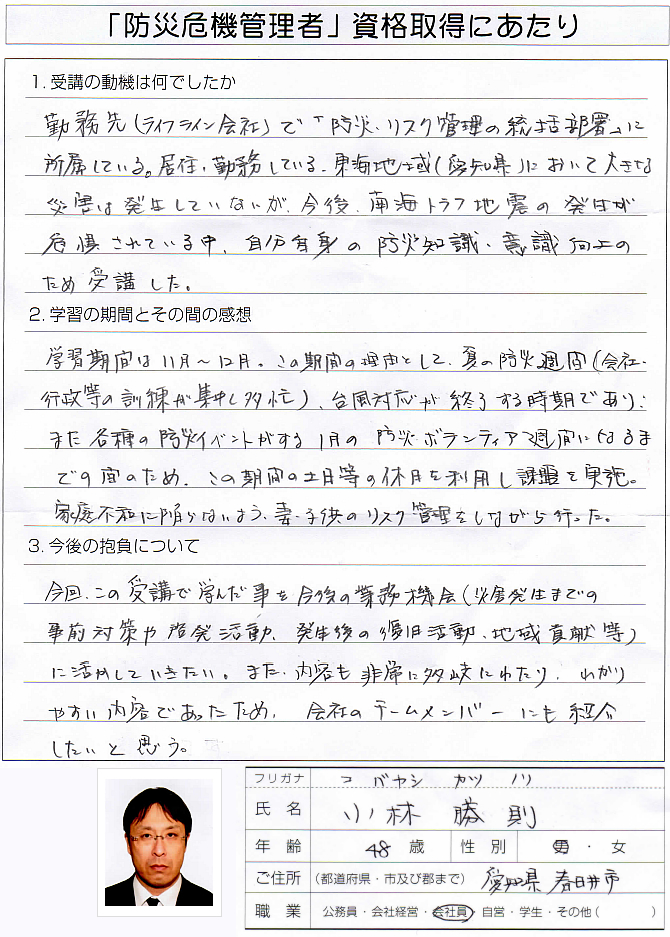 「防災危機管理者」資格取得にあたり
1. 受講の動機は何でしたか
勤務先(ライフライン会社)で「防災・リスク管理の統括部署」に
所属している。居住・勤務している、東海地域(愛知県)において大きな
災害は発生していないが、今後、南海トラフ地震の発生が
危惧されている中、自分自身の防災知識・意識向上の
ため受講した。
2. 学習の期間とその間の感想
学習期間は11月〜12月。この期間の理由として、夏の防災週間(会社・
行政等の訓練が集中し多忙)、台風対応が終了する時期であり、
また各種の防災イベントがする1月の防災ボランティア週間になるま
での間のため、この期間の土日等の休日を利用し課題を実施。
家庭不和に陥らないよう、妻・子供のリスク管理をしながら行った。
3. 今後の抱負について
今回、この受講で学んだ事を今後の業務機会(災害発生までの
事前対策や啓発活動、発生後の復旧活動、地域貢献等)
に活かしていきたい。また、内容も非常に多岐にわたり、わかり
やすい内容であったため、会社のチームメンバーにも紹介
したいと思う。
フリガナ コバヤシ カツノリ
氏名 小林 勝則
年齢 48 歳 性別 男・女
ご住所 (都道府県・市及び郡まで) 愛知県 春日井市
職業 公務員・会社経営・会社員・自営・学生・その他( )